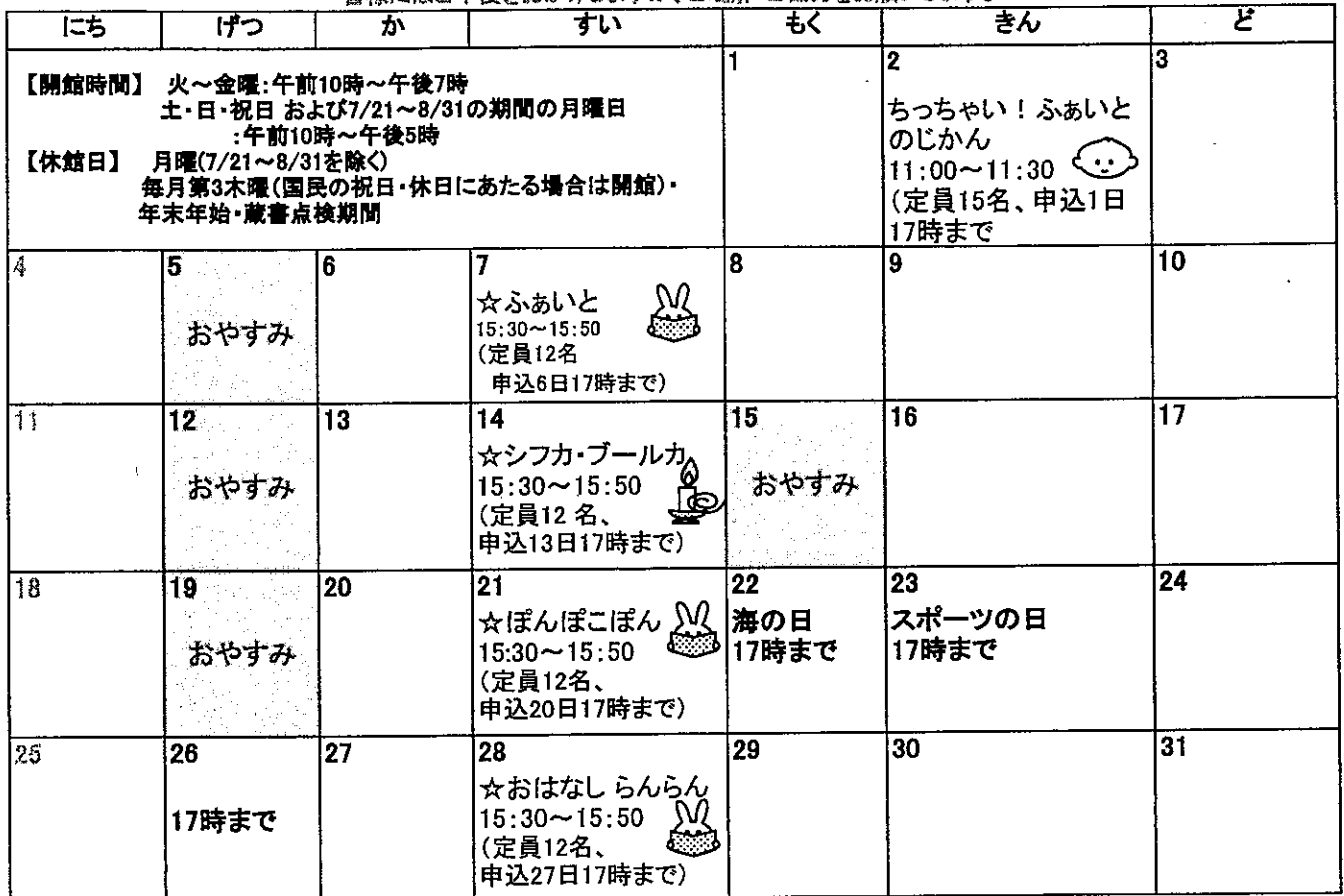 にち げつ か すい もく きん ど
【開館時間】 火～金曜:午前10時～午後7時
土・日・祝日 および7/21～8/31の期間の月曜日
:午前10時～午後5時
【休館日】 月曜(7/21～8/31を除く)
毎月第3木曜(国民の祝日・休日にあたる場合は開館)・
年末年始・蔵書点検期間
1
2
ちっちゃい！ふぁいと
のじかん
11:00～11:30
(定員15名、申込1日
17時まで
3
4
5
おやすみ
6
7
☆ふぁいと
15:30～15:50
(定員12名
申込6日17時まで)
8
9
10
11
12
おやすみ
13
14
☆シフカ・ブールカ
15:30～15:50
(定員12 名、
申込13日17時まで)
15
おやすみ
16
17
18
19
おやすみ
20
21
☆ぽんぽこぽん
15:30～15:50
(定員12名、
申込20日17時まで)
22
海の日
17時まで
23
スポーツの日
17時まで
24
25
26
17時まで
27
28
☆おはなし らんらん
15:30～15:50
(定員12名、
申込27日17時まで)
29
30
31